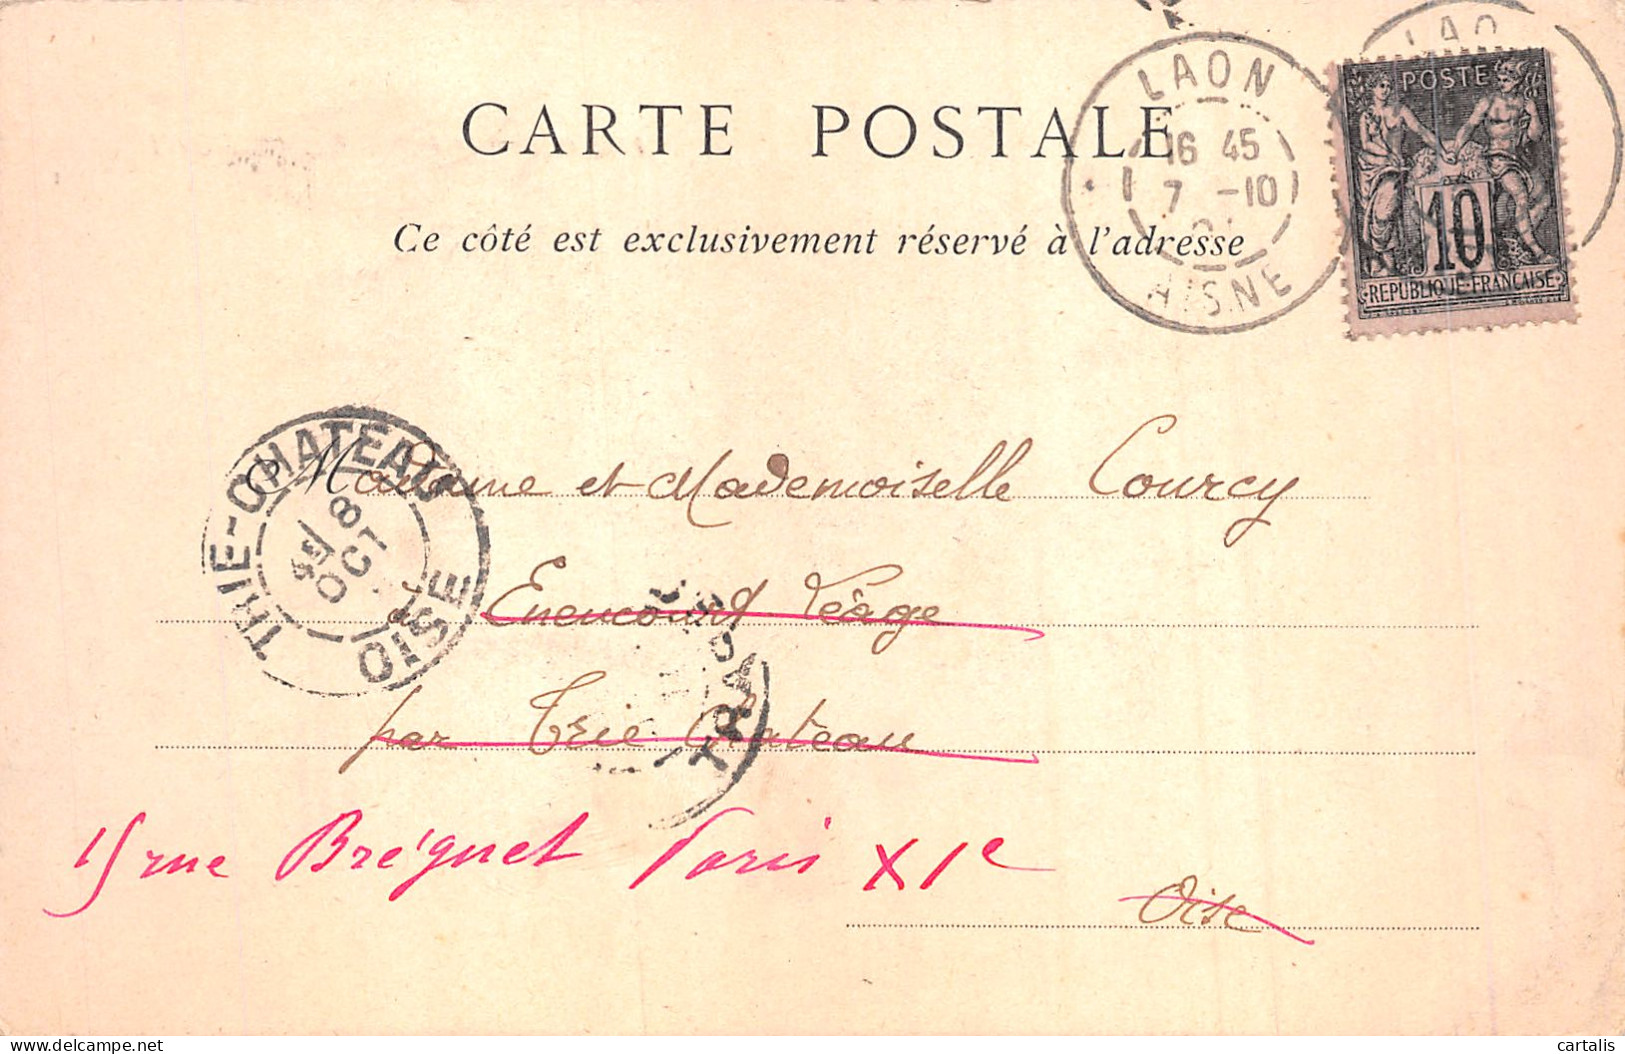 CARTE POSTALE
Ce côté est exclusivement réservé à l'adresse
LAON
16 45
7 -10
AISNE
LAO
POSTE
10
REPUBLIQUE FRANCAISE
TRIE-CHATEAU
8
OCT
OISE
Madame et Mademoiselle Courcy
à Enencourt Léage
par Trie Château
15 rue Bréguet Paris XIe
Oise
delcampe.net
cartalis